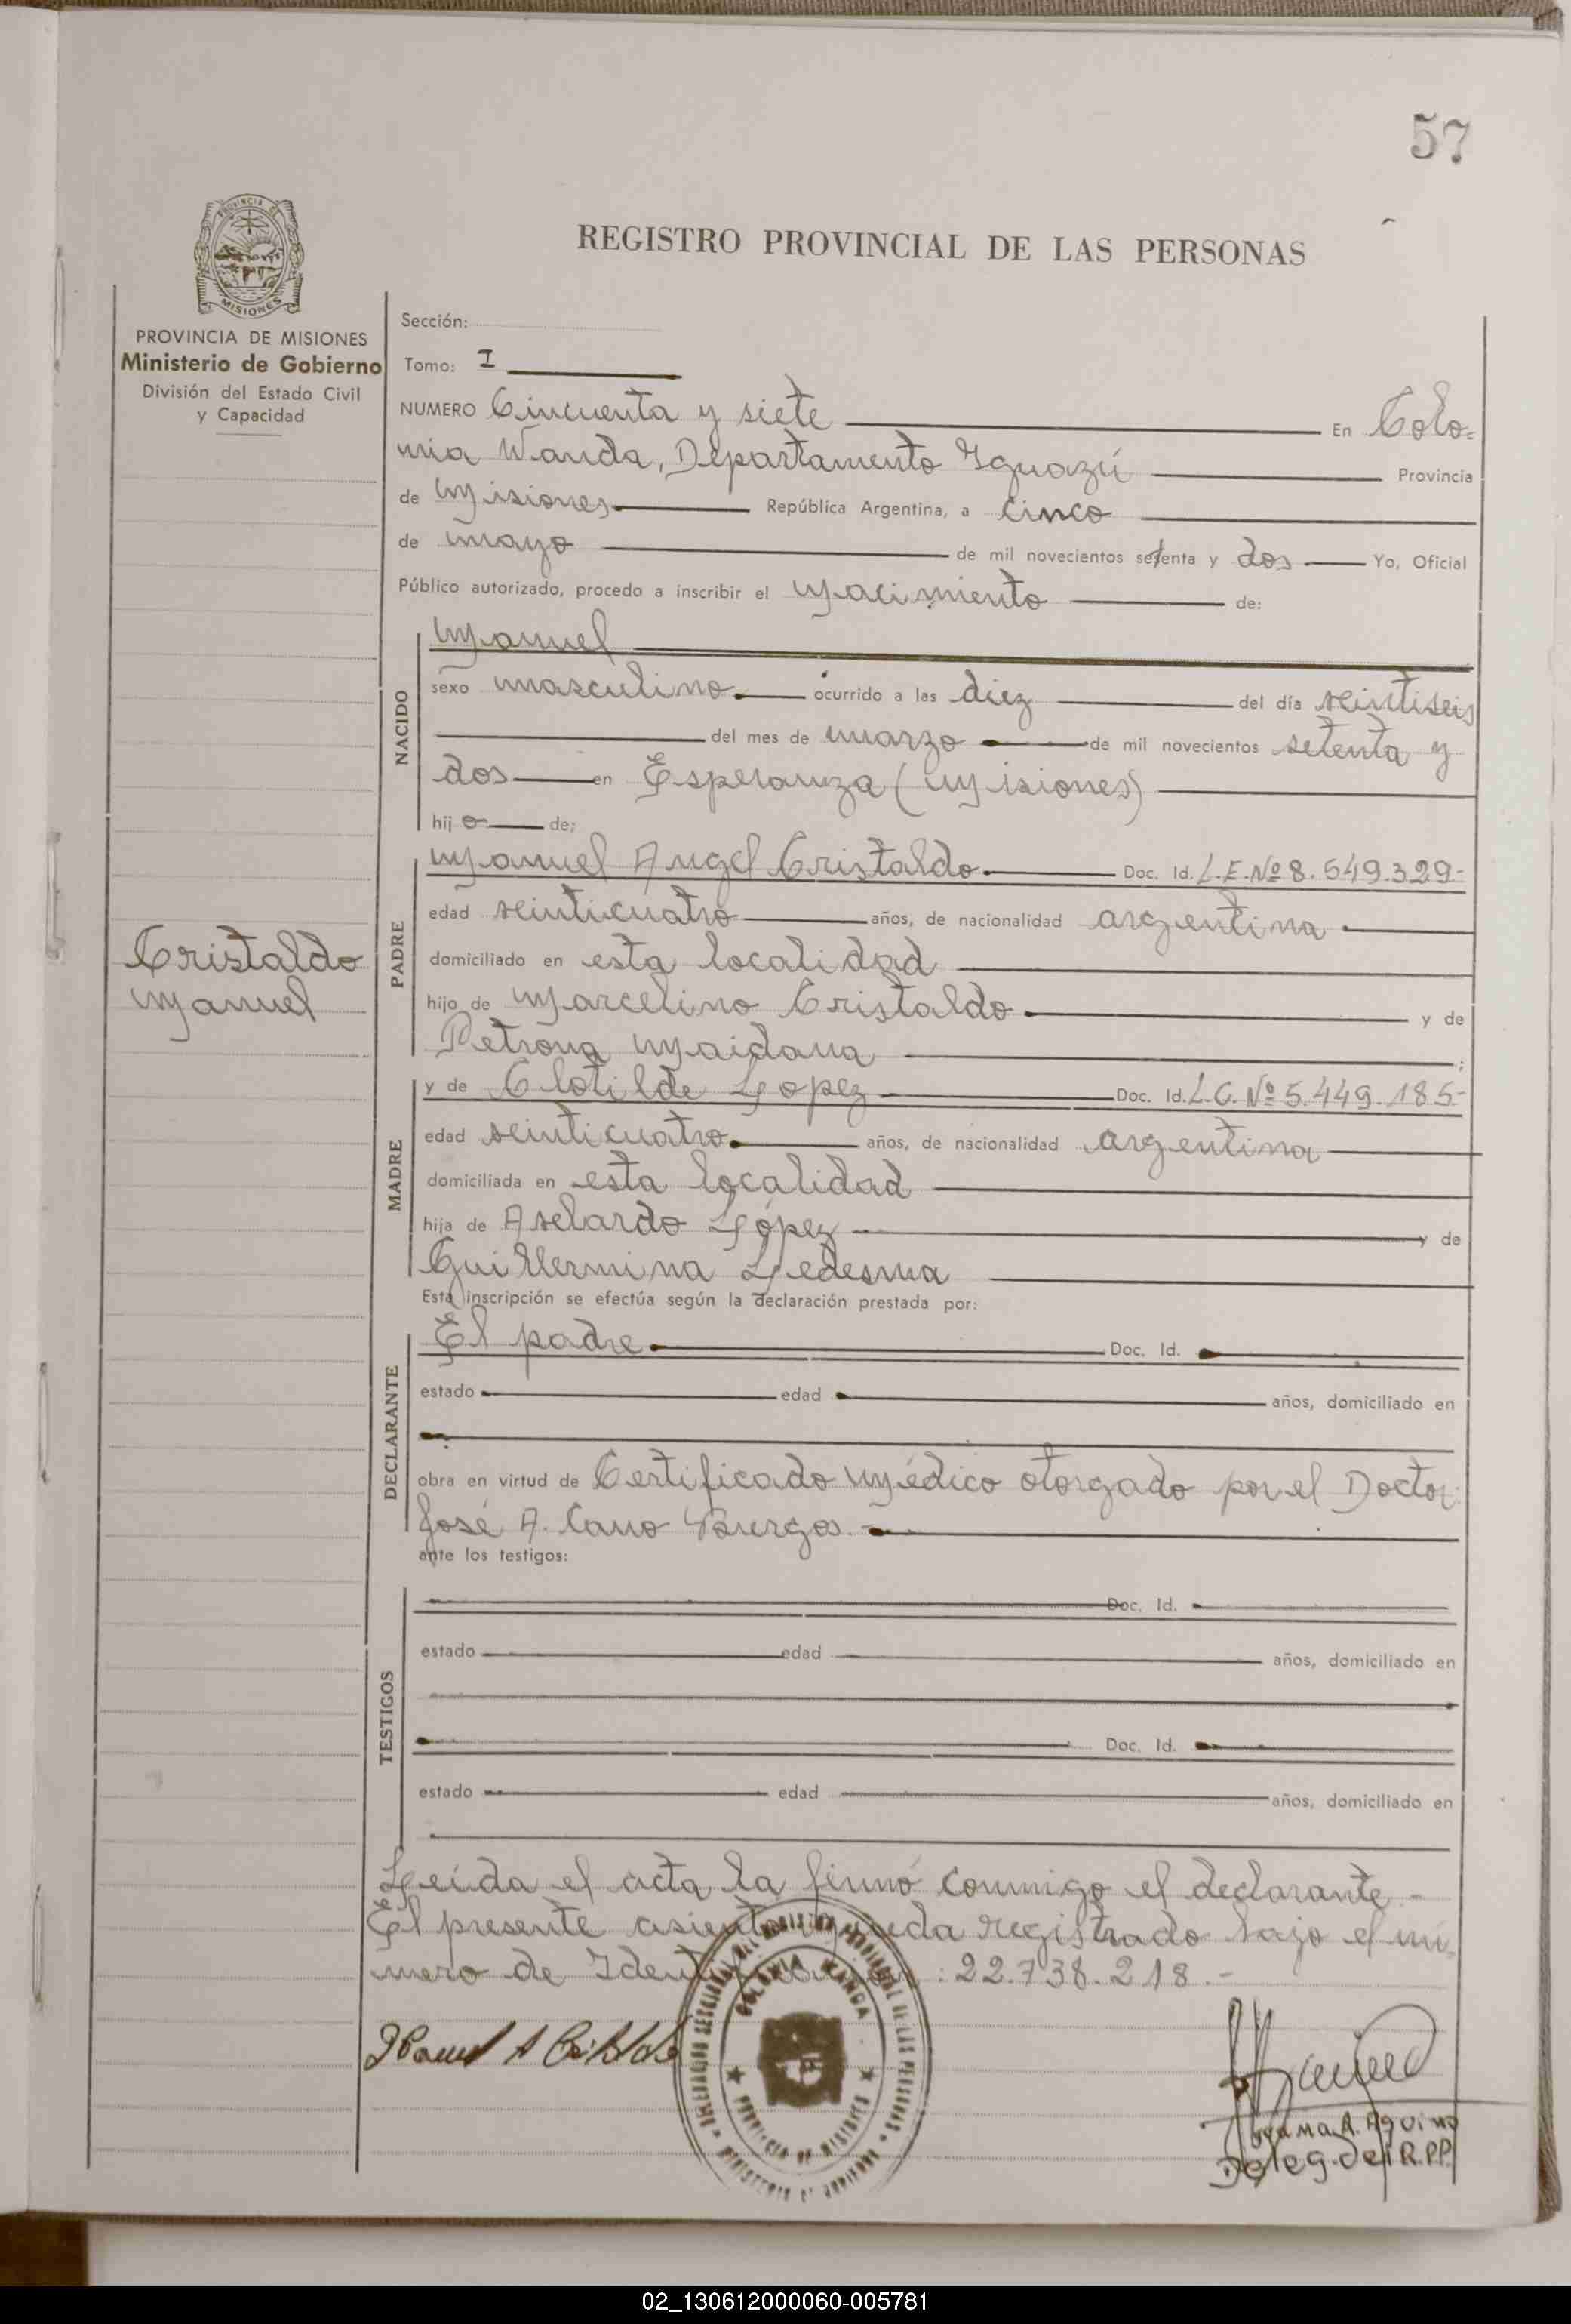 57
REGISTRO PROVINCIAL DE LAS PERSONAS
PROVINCIA DE
MISIONES
PROVINCIA DE MISIONES
Ministerio de Gobierno
División del Estado Civil
y Capacidad
Sección:
Tomo: I
NUMERO Cincuenta y siete En Colo=
nia Wanda, Departamento Iguazú Provincia
de Misiones República Argentina, a cinco
de mayo de mil novecientos setenta y dos Yo, Oficial
Público autorizado, procedo a inscribir el Nacimiento de:
NACIDO
Manuel
sexo masculino. ocurrido a las diez del día veintiseis
del mes de marzo de mil novecientos setenta y
dos en Esperanza (Misiones)
hijo de:
PADRE
Manuel Angel Cristaldo Doc. Id. L.E. Nº 8.549.329.-
edad veinticuatro años, de nacionalidad argentina
domiciliado en esta localidad
hijo de Marcelino Cristaldo y de
Petrona Maidana ;
Cristaldo
Manuel
MADRE
y de Clotilde Lopez Doc. Id. L.C. Nº 5.449.185.-
edad veinticuatro. años, de nacionalidad argentina
domiciliada en esta localidad
hija de López y de
Guillermina Ledesma
Esta inscripción se efectúa según la declaración prestada por:
DECLARANTE
El padre Doc. Id.
estado edad años, domiciliado en
obra en virtud de Certificado Médico otorgado por el Doctor
José A. Cano Burgos.-
ante los testigos:
TESTIGOS
Doc. Id.
estado edad años, domiciliado en
Doc. Id.
estado edad años, domiciliado en
Leída el acta la firmó conmigo el declarante.-
El presente asiento queda registrado bajo el nú-
mero de Identificación: 22.738.218.-
COLONIA WANDA
PROVINCIA DE MISIONES
A. Aquino
Deleg. del R.P.P.
02_130612000060-005781